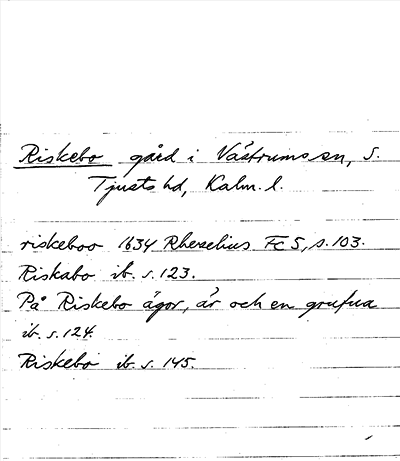 Riskebo gård i Västrums sn, S.
Tjusts hd, Kalm. l.
riskeboo 1634 Rhezelius Fc 5, s. 103.
Riskabo ib. s. 123.
På Riskebo ägor, är och en grufua
ib. s. 124.
Riskebo ib. s. 145.